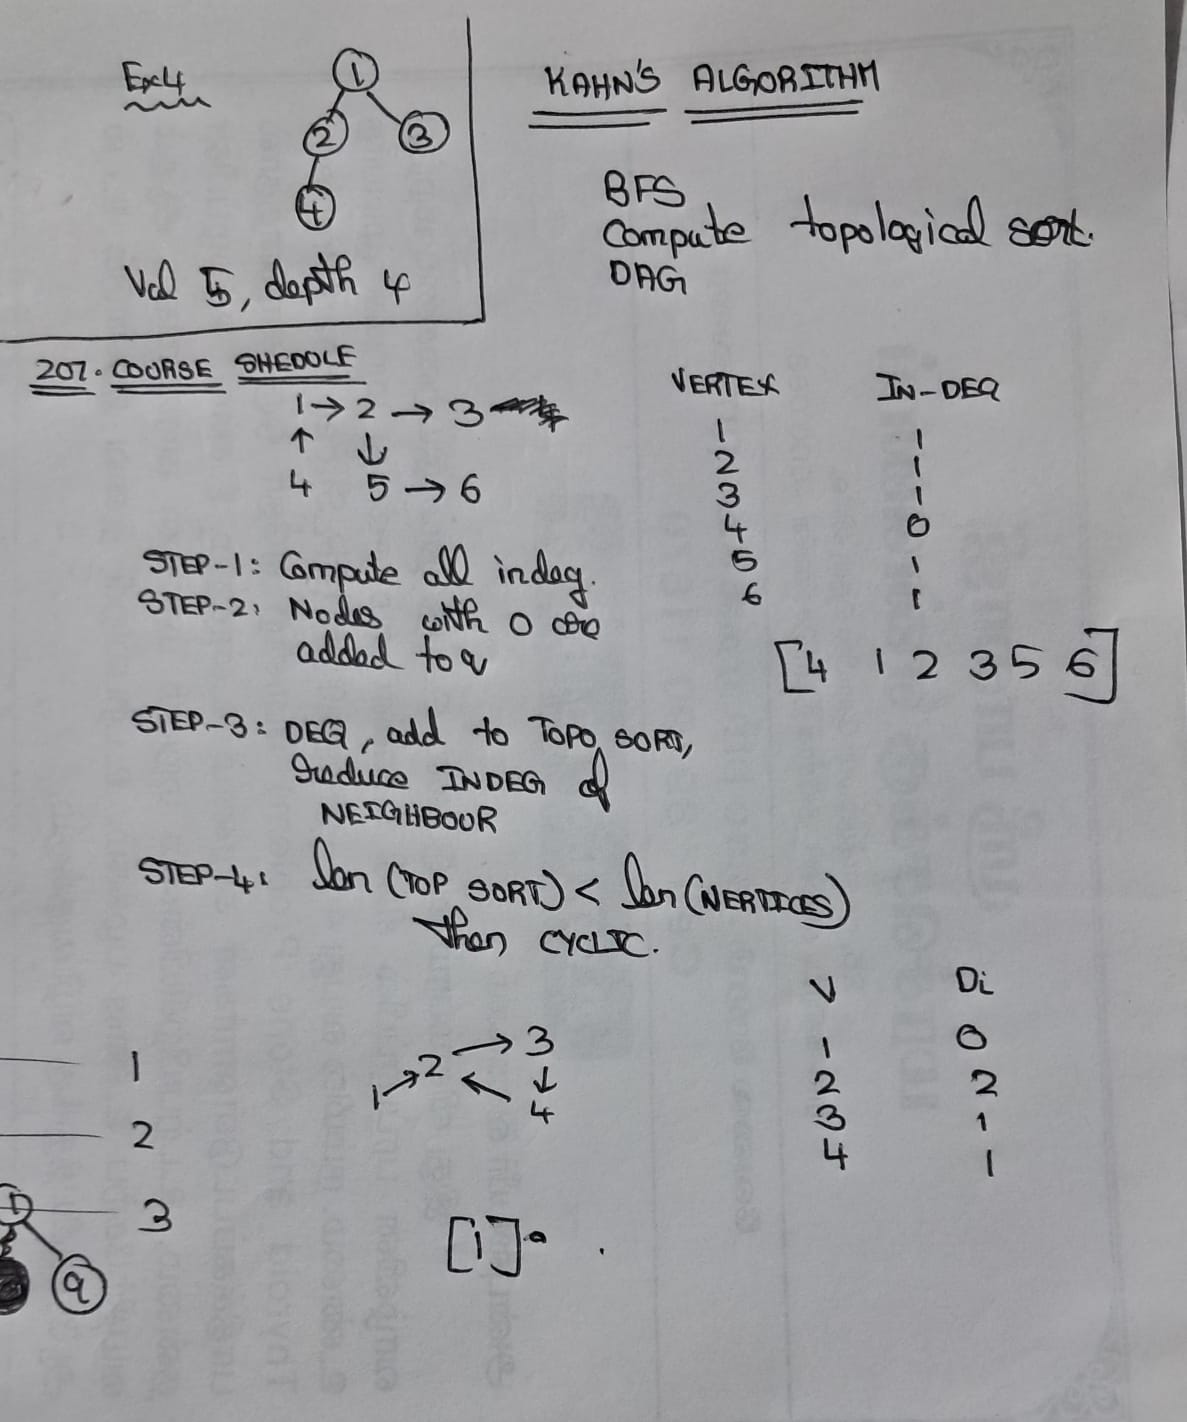 Ex4
1
2 3
4
Val 5, depth 4
KAHN'S ALGORITHM
BFS
Compute topological sort.
DAG
207. COURSE SHEDULE
1 → 2 → 3
↑ ↓
4 5 → 6
VERTEX IN-DEG
1 1
2 1
3 1
4 0
5 1
6 1
[4 1 2 3 5 6]
STEP-1: Compute all indeg.
STEP-2: Nodes with 0 are
added to q
STEP-3: DEQ, add to TOPO SORT,
reduce INDEG of
NEIGHBOUR
STEP-4: len (TOP SORT) < len (VERTICES)
then CYCLIC.
V Di
1 0
2 2
3 1
4 1
1 → 2 → 3
← ↓
4
[1]
1
2
3
9